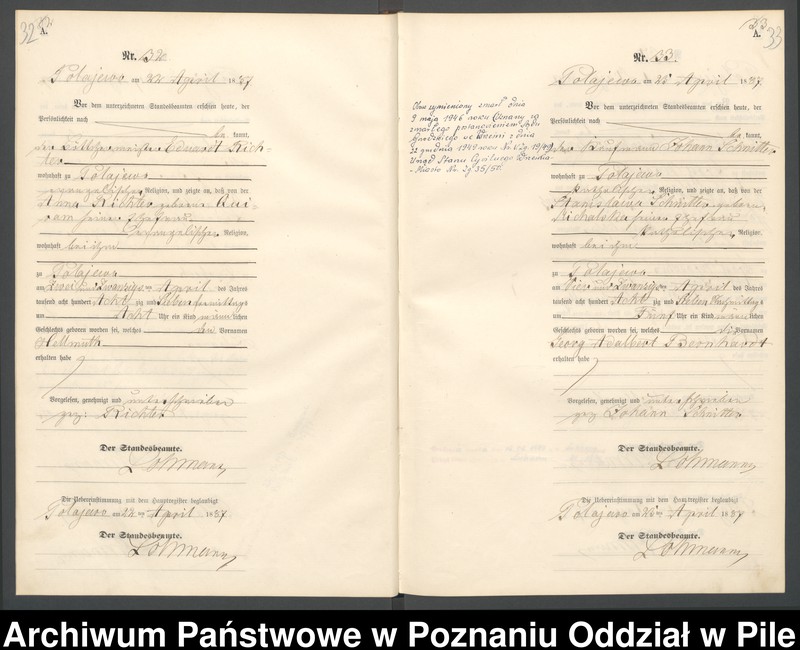 32
A.
Nr. 32.
Polajewo am 22 April 1887
Vor dem unterzeichneten Standesbeamten erschien heute, der
Persönlichkeit nach
be kannt,
der Böttchermeister Eduard Rich-
ter
wohnhaft zu Polajewo
evangelischer Religion, und zeigte an, daß von der
Anna Richter geborene
seiner Ehefrau
evangelischer Religion,
wohnhaft bei ihm
zu Polajewo
am Zwei und zwanzigsten April des Jahres
tausend acht hundert Acht zig und Sieben Vormittags
um Acht Uhr ein Kind männlichen
Geschlechts geboren worden sei, welches den Vornamen
Hellmuth
erhalten habe
Vorgelesen, genehmigt und unterschrieben
gez: Richter
Der Standesbeamte.
Lohmann
Die Uebereinstimmung mit dem Hauptregister beglaubigt
Polajewo am 22ten April 1887
Der Standesbeamte.
Lohmann
33
A.
33
Nr. 33.
Polajewo am April 1887.
Vor dem unterzeichneten Standesbeamten erschien heute, der
Persönlichkeit nach
be kannt,
der Kaufmann Johann Schnitter
wohnhaft zu Polajewo
katholischer Religion, und zeigte an, daß von der
Stanislawa Schnitter geborene
Michalska seiner Ehefrau
katholischer Religion,
wohnhaft bei ihm
zu Polajewo
am Vier und zwanzigsten April des Jahres
tausend acht hundert Acht zig und Sieben Nachmittags
um Fünf Uhr ein Kind männlichen
Geschlechts geboren worden sei, welches die Vornamen
Georg Adalbert Bernhardt
erhalten habe
Vorgelesen, genehmigt und unterschrieben
gez Johann Schnitter
Der Standesbeamte.
Lohmann
Die Uebereinstimmung mit dem Hauptregister beglaubigt
Polajewo am April 1887
Der Standesbeamte.
Lohmann
Obok wymieniony zmarł dnia
9 maja 1946 roku Uznany za
zmarłego postanowieniem Sądu
Grodzkiego we z dnia
grudnia 1949 roku
Urząd Stanu Cywilnego
Miasto Nr.
Archiwum Państwowe w Poznaniu Oddział w Pile